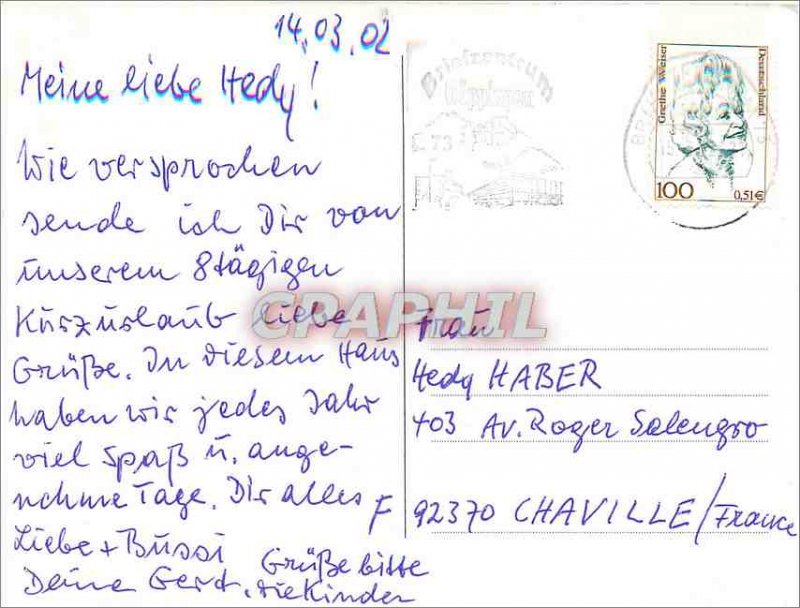 14.03.02
Meine liebe Hedy!
Wie versprochen
sende ich Dir von
unserem 8tägigen
Kurzurlaub liebe
Grüße. In diesem Haus
haben wir jedes Jahr
viel Spaß u. ange-
nehme Tage. Dir alles
Liebe + Bussi
Deine Gert.
Grüße bitte
die Kinder
Briefzentrum
Göppingen
73
Grethe Weiser
Deutschland
100
0,51€
CPAPHIL
Frau
Hedy HABER
403 Av. Roger Salengro
F 92370 CHAVILLE/France